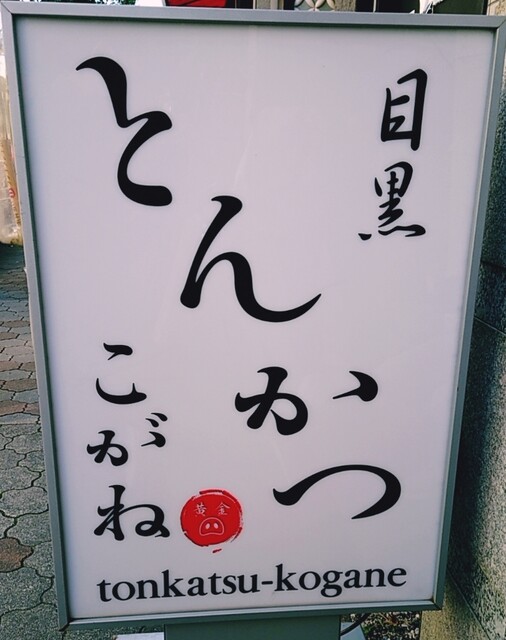 目黒
とんかつ
こがね
黄金
tonkatsu-kogane